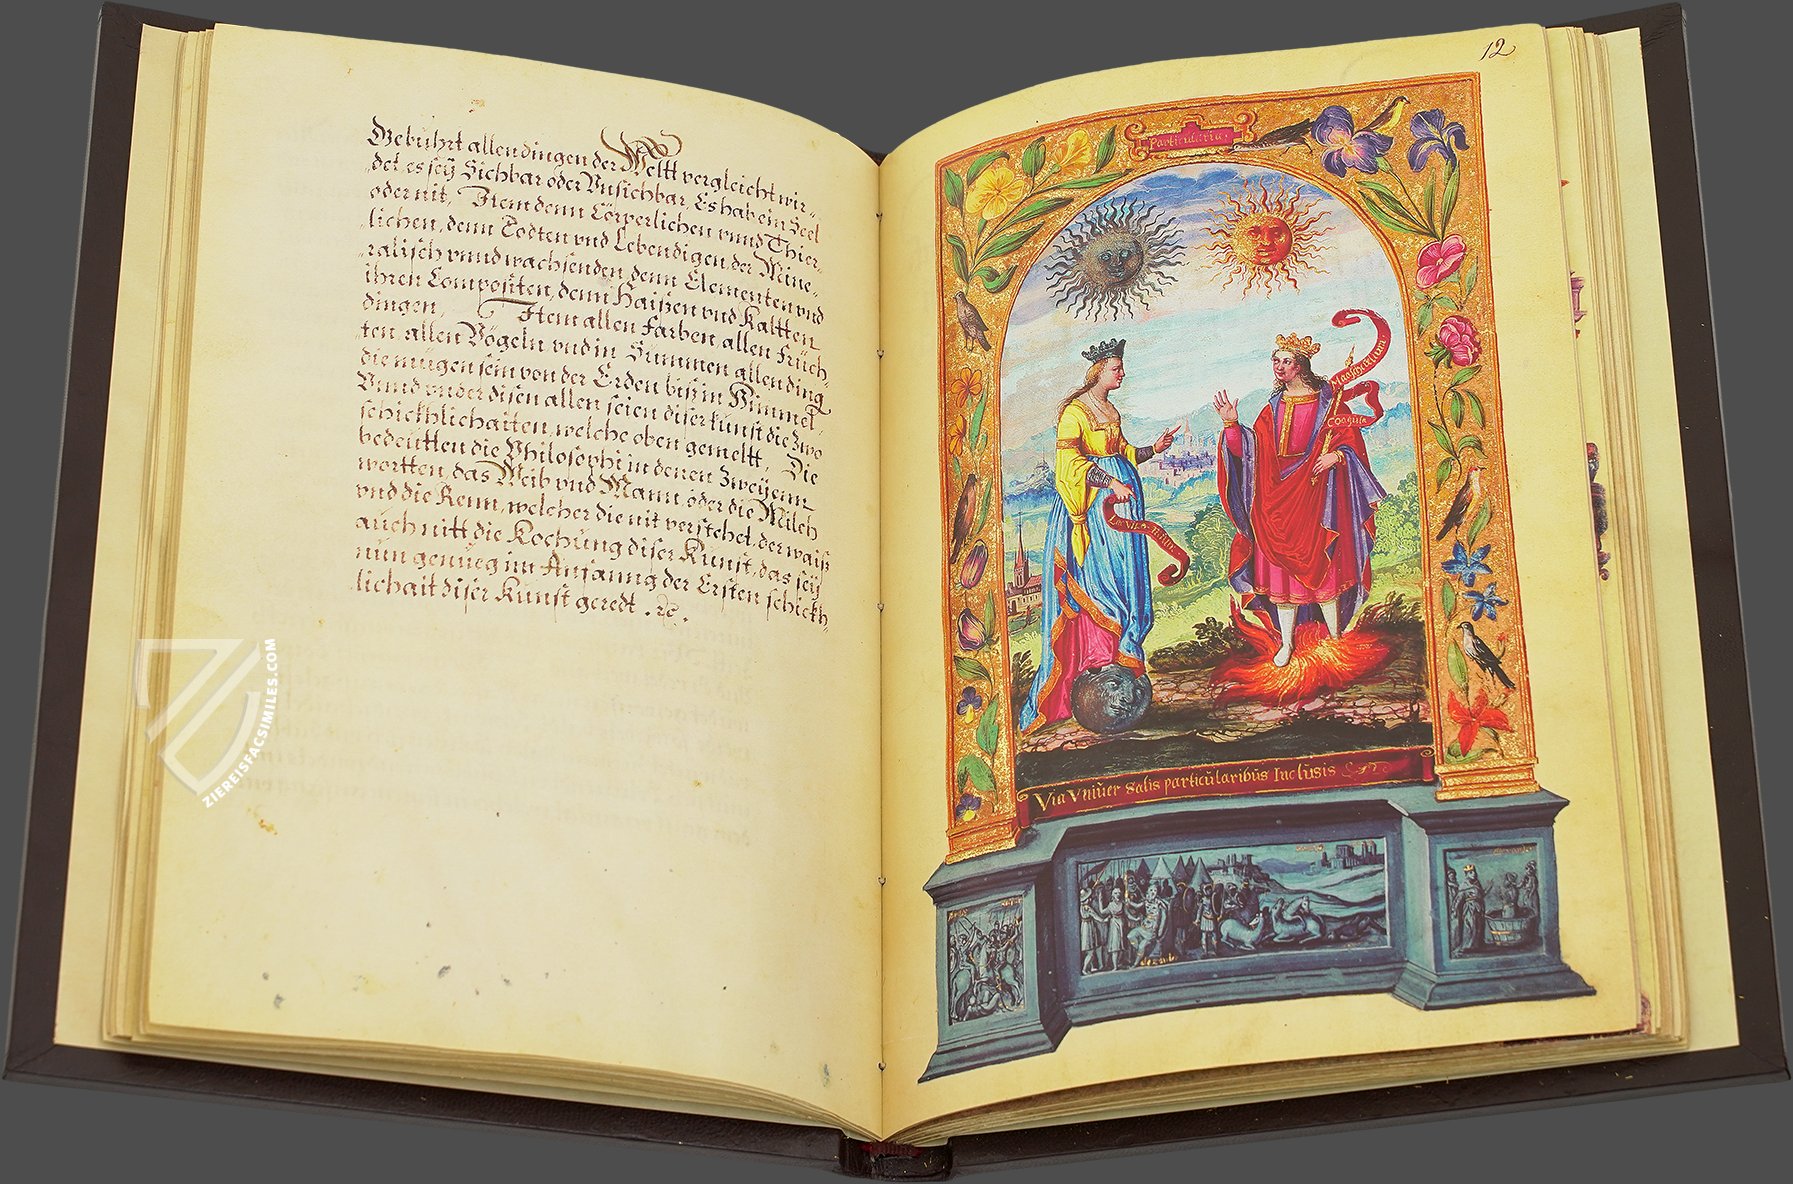 Gebührt allen dingen der Weltt vergleicht wir„
„det, es seÿ Sichbar oder Vnsichbar, Es hab ein Seel
oder nit, Item denn Cörperlichen vnnd Thier„
„lichen, denn Todten vnd Lebendigen, der Mine„
„ralisch vnnd wachsenden, denn Elementen vnd
ihren Compositen, denn Haißen vnd Kaltten
dingen, Item allen Farben, allen Frücht„
„ten allen Vögeln, vnd in Summen allen ding
die mügen sein von der Erden biß in Himmel,
Vnnd vnder disen allen seien diser kunst die Zwo
schickhlichaiten, welche oben gemeltt, Die
bedeutten die Philosophi in denen Zweÿenn
wortten, das Weib vnd Mann, oder die Milch
vnd die Renn, welcher die nit verstehet, der waiß
auch nitt die Kochung diser Kunst, das seÿ
nun genueg im Anfanng der Ersten schickh„
„lichait diser Kunst geredt. ꝛc.
ZIEREISFACSIMILES.COM
12
Particularia.
Coagula
Via Vniuer salis particularibus Inclusis